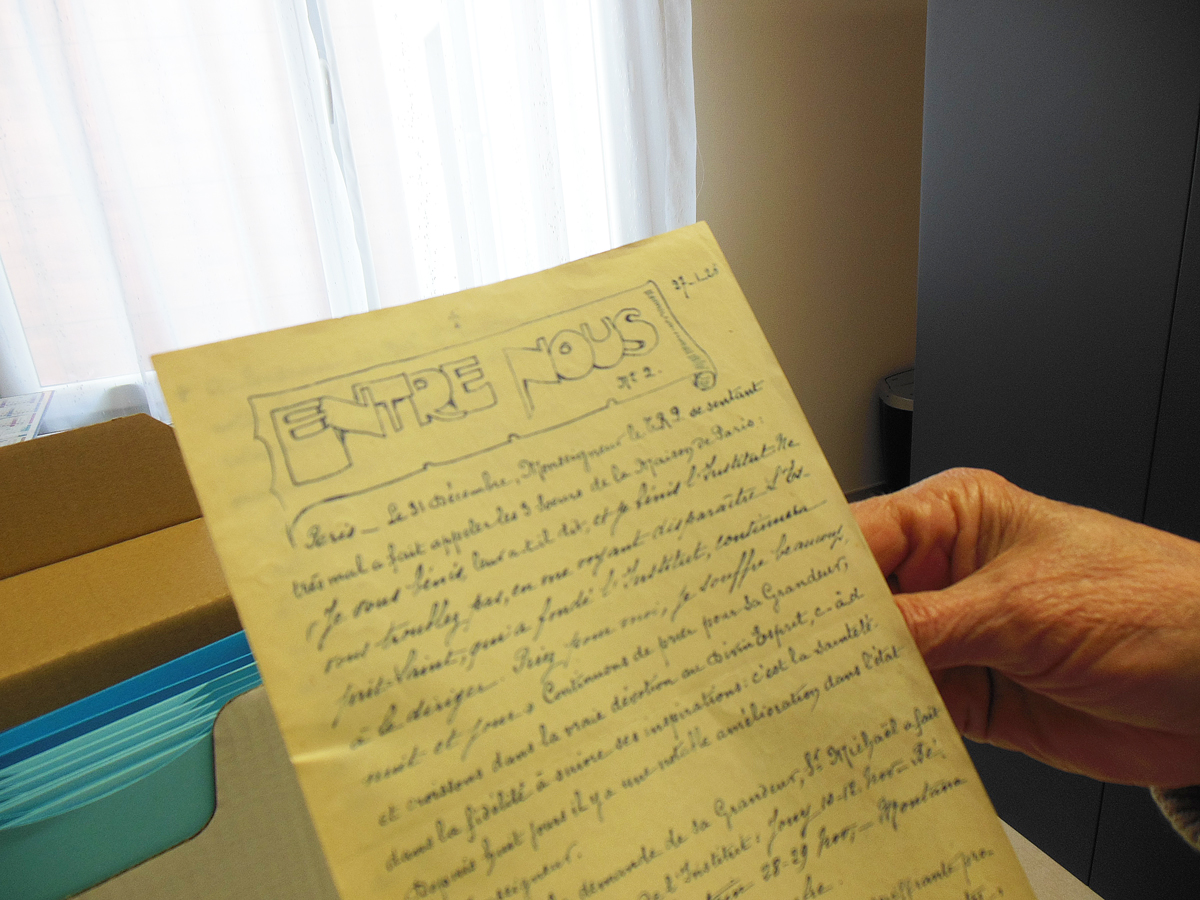 27-1-
ENTRE NOUS
Nº 2.
Paris – Le 31 décembre, Monseigneur le T.R.P. se sentant
très mal a fait appeler les 3 soeurs de la Maison de Paris :
"Je vous bénis, leur a-t-il dit, et je bénis l'Institut. Ne
vous troublez pas, en me voyant disparaître. L'Es-
prit-Saint, qui a fondé l'Institut, continuera
à le diriger. Priez pour moi, je souffre beaucoup,
nuit et jour." Continuons de prier pour Sa Grandeur,
et croissons dans la vraie dévotion au Divin Esprit, c-à-d
dans la fidélité à suivre ses inspirations : c'est la sainteté.
Depuis huit jours il y a une notable amélioration dans l'état
demande de Sa Grandeur, St Michaël a fait
de l'Institut : Jouy 10-12.
28-29 – Montana
souffrante